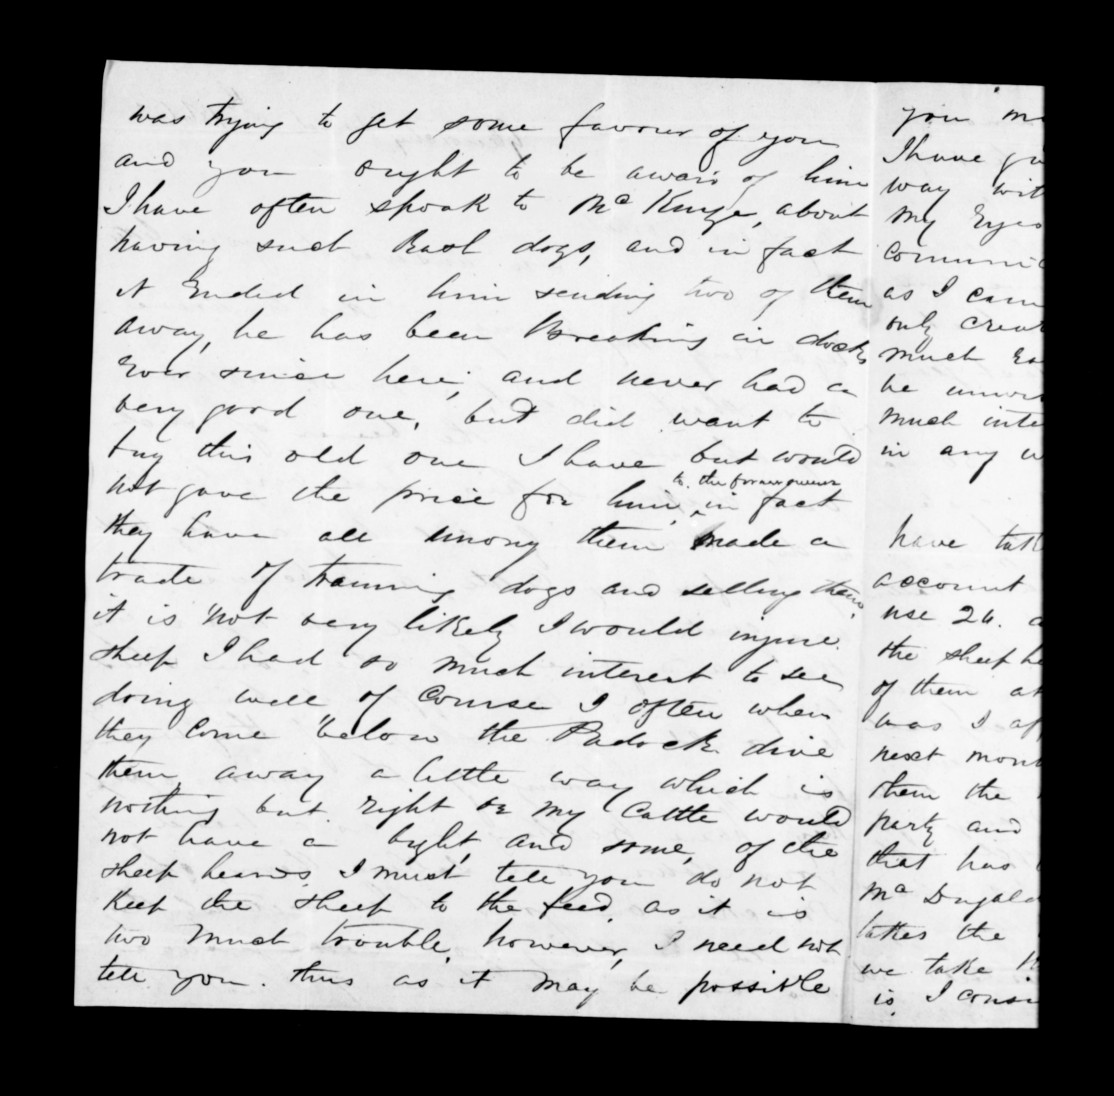 was trying to get some favour of you
and you ought to be awair of him
I have often spoak to Mc Kinze, about
having such Bad dogs, and in fact
it Ended in him sending two of them
away, he has been Breaking in dogs
Ever since here, and never had a
very good one, but did want to
buy this old one I have but would
not gave the price for him, in fact
to the former owner
they have all among them made a
trade of training dogs and selling them,
it is not very likely I would injure
sheep I had so much interest to see
doing well of Course I often when
they Come below the Padock drive
them away a little way which is
nothing but right or my Cattle would
not have a bight, and some, of the
sheep heards, I must tell you do not
keep the sheep to the feed, as it is
two much trouble, however, I need not
tell you. this as it may be possible
you
I have
way
My Eyes
as I
only
much
be
much
in any
have
account
use 26.
the sheep
of them
was I
next
them the
party and
that has
Mc Dugald
takes the
we take
is, I